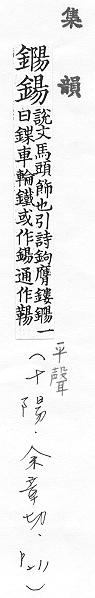 集韻
鐊鍚
說文馬頭飾也引詩鉤膺鏤鐊一
曰鍱車輪鐵或作鍚通作䵮
平聲
(十陽．余章切．P.211)